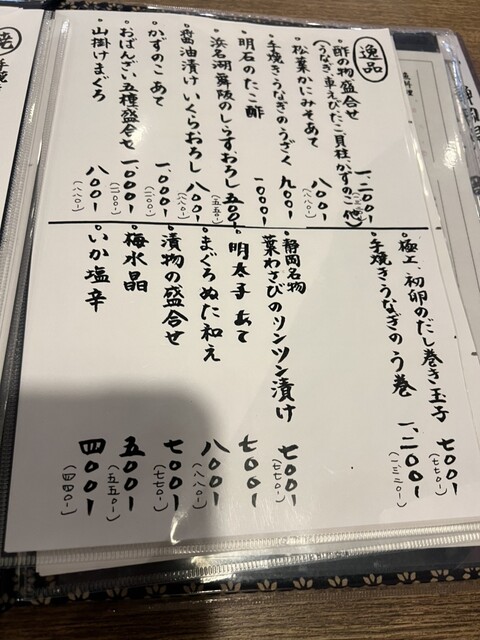 逸品
・酢の物盛合せ
(うなぎ、車えび、たこ、貝柱、かずのこ他)
一、二〇〇-
・松葉かにみそあて
八〇〇-
(八八〇-)
・手焼きうなぎのうざく
九〇〇-
・明石のたこ酢
一、〇〇〇-
・浜名湖舞阪のしらすおろし
五〇〇-
(五五〇-)
・醤油漬けいくらおろし
八〇〇-
(八八〇-)
・かずのこあて
一、〇〇〇-
(一一〇〇-)
・おばんざい五種盛合せ
一、〇〇〇-
(一一〇〇-)
・山掛けまぐろ
八〇〇-
(八八〇-)
・極上、初卵のだし巻き玉子
七〇〇-
(七七〇-)
・手焼きうなぎのう巻
一、二〇〇-
(一三二〇-)
・静岡名物
葉わさびのツンツン漬け
七〇〇-
(七七〇-)
・明太子あて
七〇〇-
・まぐろぬた和え
八〇〇-
(八八〇-)
・漬物の盛合せ
七〇〇-
(七七〇-)
・梅水晶
五〇〇-
(五五〇-)
・いか塩辛
四〇〇-
(四四〇-)